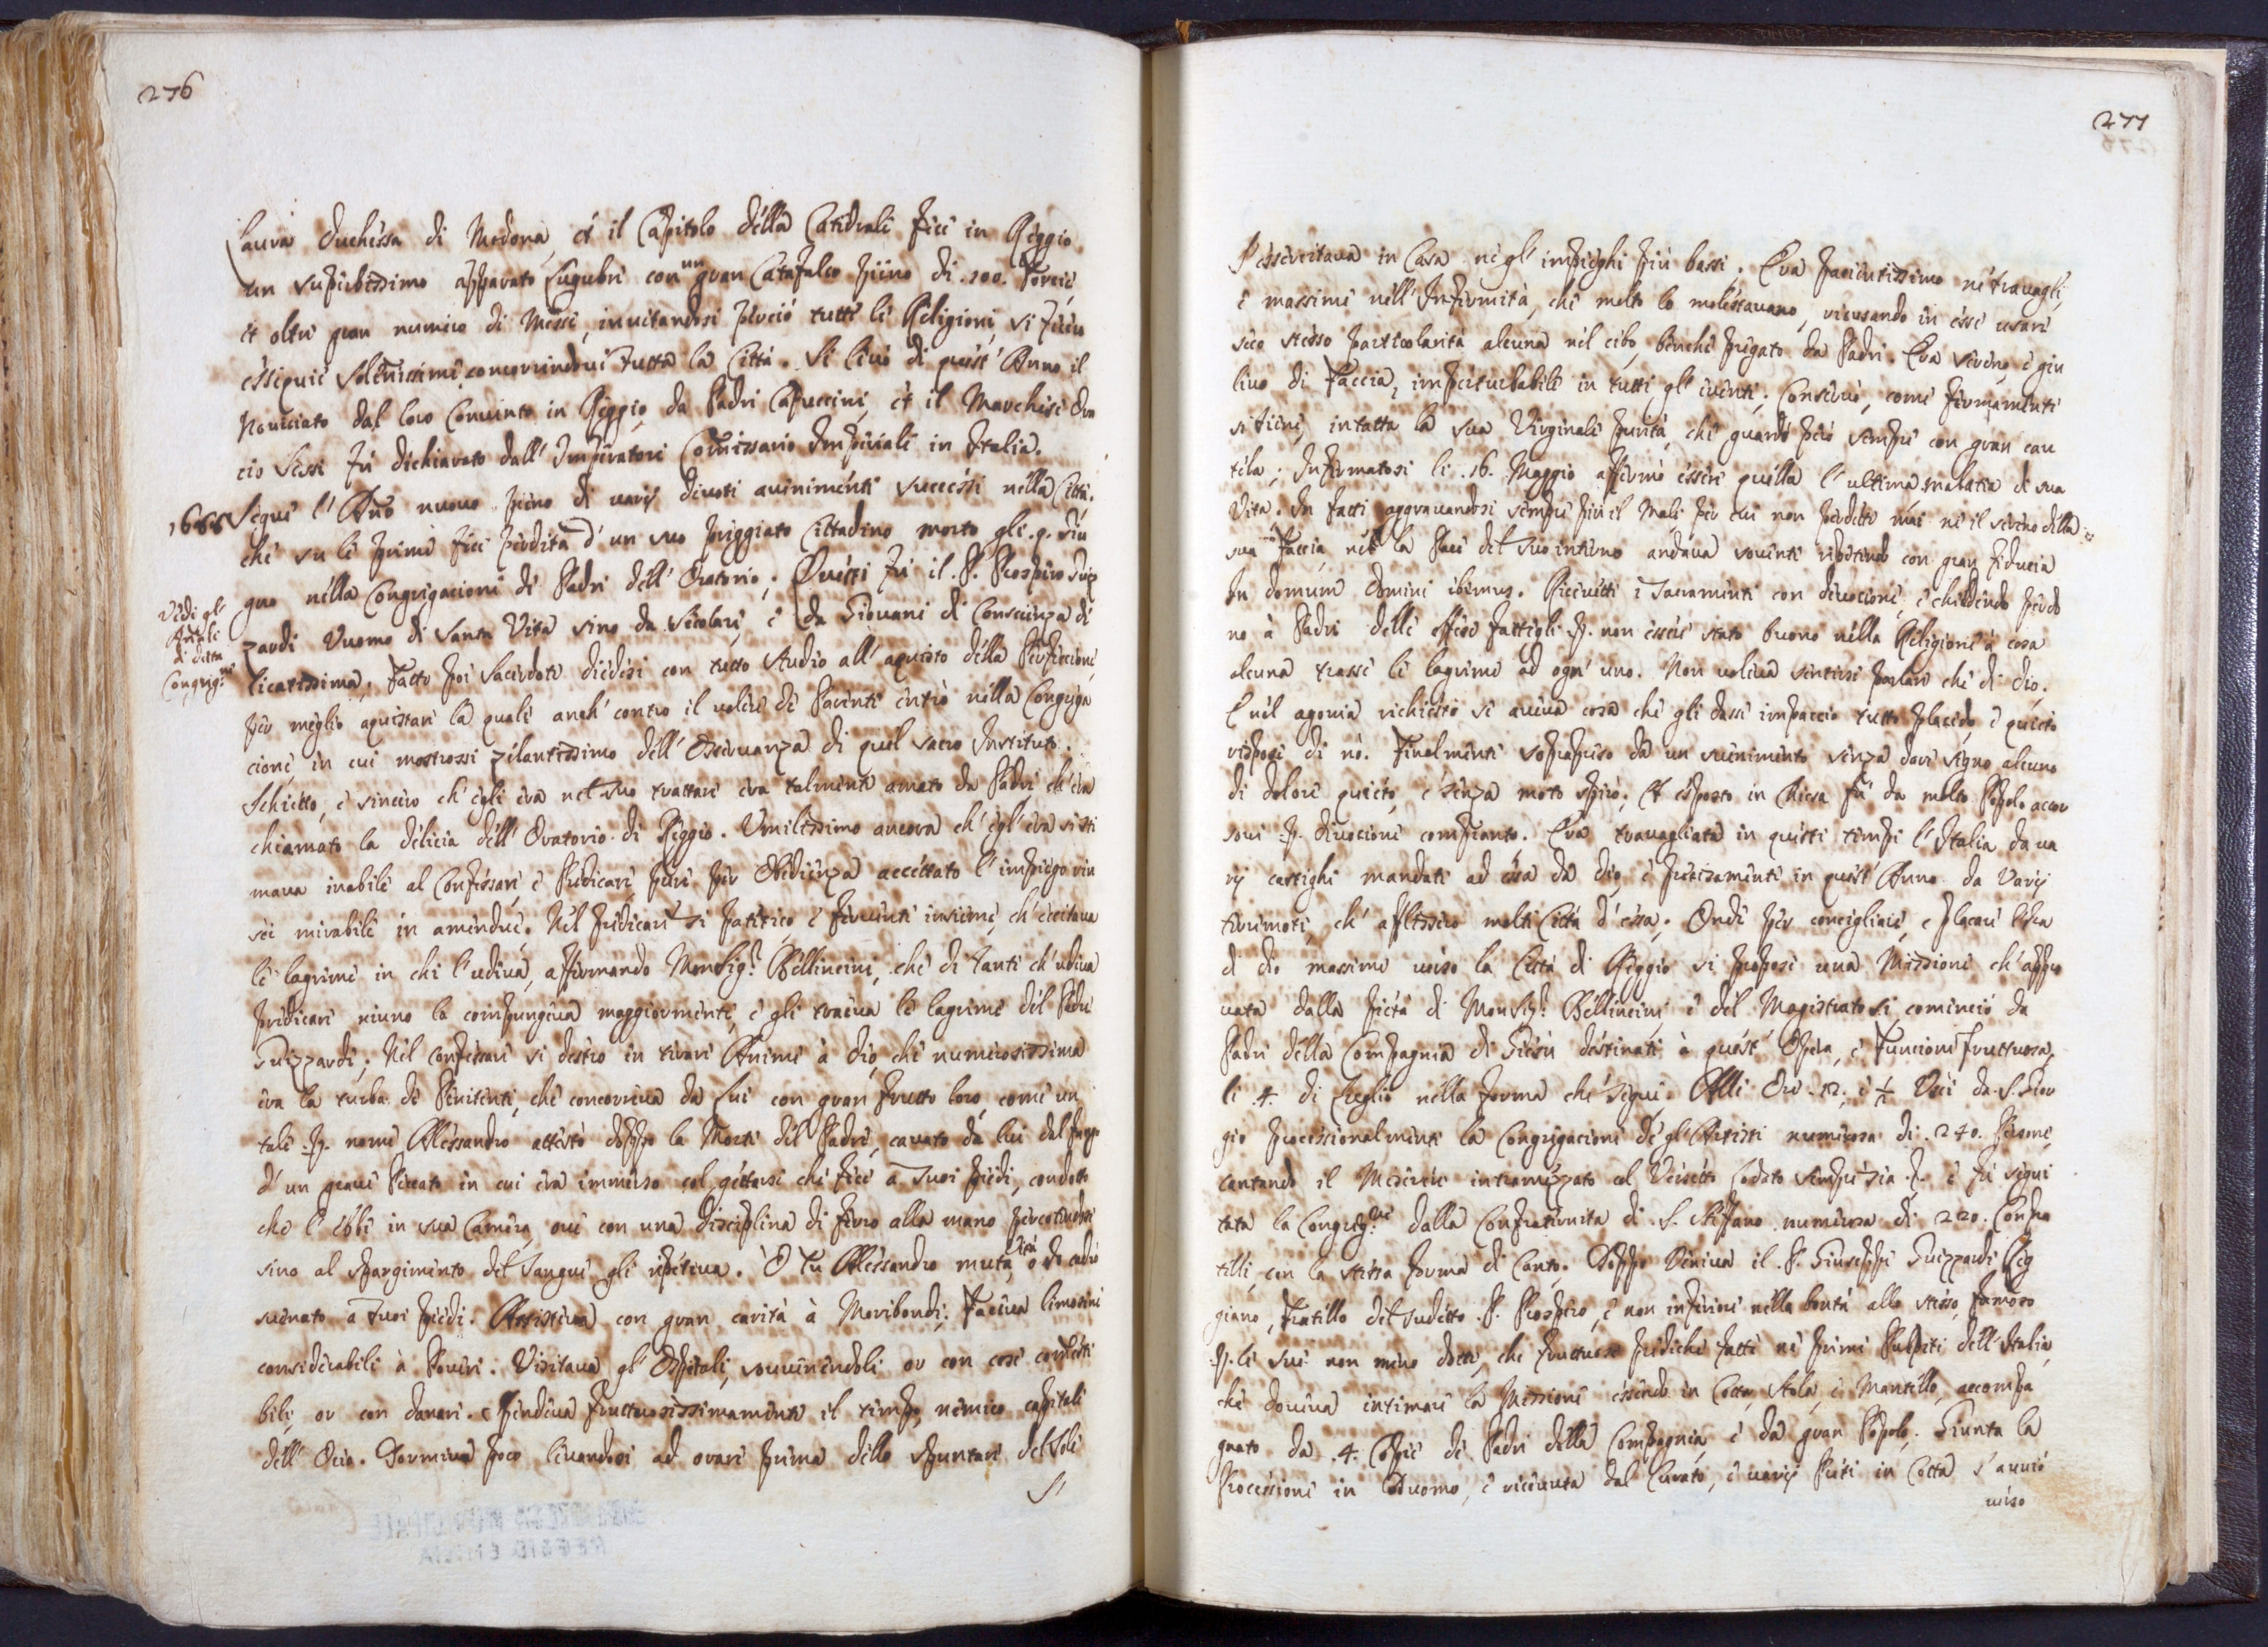 276
Laura Duchessa di Modona, et il Capitolo della Catedrale fece in Reggio
un superbissimo apparato lugubre con un gran Catafalco pieno di .100. Torcie
et oltre gran numero di Messe, invitandosi perciò tutte le Religioni, si fecero
essequie solenissime concorrendovi tutta la Città. Si levò di quest' Anno il
Noviciato dal loro Convento in Reggio da Padri Capuccini, et il Marchese Ora
cio Sessi fù dichiarato dall' Imperatore Comissario Imperiale in Italia.
1688 Seguì l' Año nuovo pieno di varij divoti avenimenti successi nella Città.
che su le prime fece perdita d' un suo preggiato Cittadino morto gli .9. Giu
gno nella Congregacione de Padri dell' Oratorio. Questi fù il .P. Prospero Guiz
zardi Vuomo di Santa Vita sino da Secolare, e da Giovane di Conscienza de
Vedi gl'
Añali
di detta
Congreg.ne
licatissima. Fatto poi Sacerdote diedesi con tutto studio all' aquisto della Perfecione,
per meglio aquistare la quale anch' contro il volere de Parenti entrò nella Congrega
cione, in cui mostrossi zelantissimo dell' Osservanza di quel sacro Instituto.
Schietto, e sincero ch' egli era nel suo trattare era talmente amato da Padri ch' era
chiamato la delicia dell' Oratorio di Reggio. Umilissimo ancora ch' egl' era si sti
mava inabile al Confessare, e Predicare pure per Obedienza accettato l' impiego riu
scì mirabile in amendue. Nel predicare sì patetico e fervente insieme, ch' eccitava
le lagrime in chi l' udiva, affermando Monsig.r Bellincini, che di tanti ch' udiva
predicare niuno lo compungeva maggiormente, e gli traeva le lagrime del Padre
Guizzardi. Nel confessare sì destro in tirare Anime à Dio, che numerosissima
era la turba de Penitenti, che concorreva da lui con gran frutto loro come un
tale .P. nome Alessandro attestò doppo la Morte del Padre, cavato da lui dal
d' un grave Peccato in cui era immerso col gettarsi che fece a suoi piedi, condotto
che l' ebbe in sua Camera, ove con una disciplina di ferro alla mano percotendosi
sino al spargimento del Sangue gli ripeteva. O Tu Alessandro muta vita, o io cadrò
svenato a tuoi piedi. Assisteva con gran carità à Moribondi. Faceva limosine
considerabili à Poveri. Visitava gl' Ospitali, sovvenendoli or con cose comesti
bili, or con danari. Spendeva fruttuosissimamente il tempo, nemico capitale
dell' Ocio. Dormiva poco levandosi ad orare prima dello spuntare del Sole
S'
277
S' essercitava in Casa ne gl' impieghi più bassi. Era pacientissimo ne travagli,
e massime nell' Infermità, che molto lo molestavano, ricusando in esse usare
seco stesso particolarità alcuna nel cibo, benche pregato da Padri. Era sereno, e giu
livo di Faccia, imperturbabile in tutti gl' eventi. Conservò, come fermamente
si tiene, intatta la sua Virginale purità, che guardò però sempre con gran cau
tela. Infermatosi li .16. Maggio affermò essere quella l' ultima malatia di sua
Vita. In fatti aggravandosi sempre più il Male per cui non perdette mai ne il sereno della
sua Faccia, ne la Pace del suo interno andava sovente ripetendo con gran fiducia
In domum Domini ibimus. Ricevette i Sacramenti con devocione, e chiedendo perdo
no à Padri delle offese fattegli .P. non essere stato buono nella Religione à cosa
alcuna trasse le lagrime ad ogn' uno. Non voleva sentirsi parlare che di Dio.
E nel agonia richiesto se aveva cosa che gli dasse impaccio tutto placido, e quieto
rispose di nò. Finalmente soprapreso da un svenimento senza dare segno alcuno
di dolore quieto, e senza moto spirò. Et esposto in Chiesa fù da molto Popolo accor
sovi .P. divocione compianto. Era travagliata in questi tempi l' Italia da va
rij castighi mandati ad essa da Dio, e precisamente in quest' Anno da varij
terremoti, ch' afflissero molte Città d' essa. Onde per concigliare, e placare l'Ira
di Dio massime verso la Città di Reggio si propose una Missione ch' appro
vata dalla pietà di Monsig.r Bellincini, e del Magistrato si cominciò da
Padri della Compagnia di Giesù destinati à quest' Opera, e Funcione fruttuosa,
li .4. di Luglio nella forma che segue. Alle Ore .12. e ½ Uscì da S. Gior
gio processionalmente la Congregacione de gl' Artisti numerosa di .240. Persone,
cantando il Miserere intramezzato col Versetto Lodato sempre sia .P. e fù segui
tata la Congreg.ne dalla Confraternita di .S. Stefano numerosa di .220. Confra
telli, con la stessa forma di Canto. Doppo Veniva il .P. Giuseppe Guizzardi Reg
giano, Fratello del sudetto .P. Prospero, e non inferiore nella bontà allo stesso, famoso
.P. le sue non meno dotte, che fruttuose prediche fatte ne primi Pulpiti dell' Italia,
che doveva intimare la Missione essendo in Cotta, Stola, e Mantello, accompa
gnato da .4. Copie de Padri della Compagnia, e da gran Popolo. Giunta la
Processione in Duomo, e ricevuta dal Curato, e varij Preti in Cotta s' avviò
verso